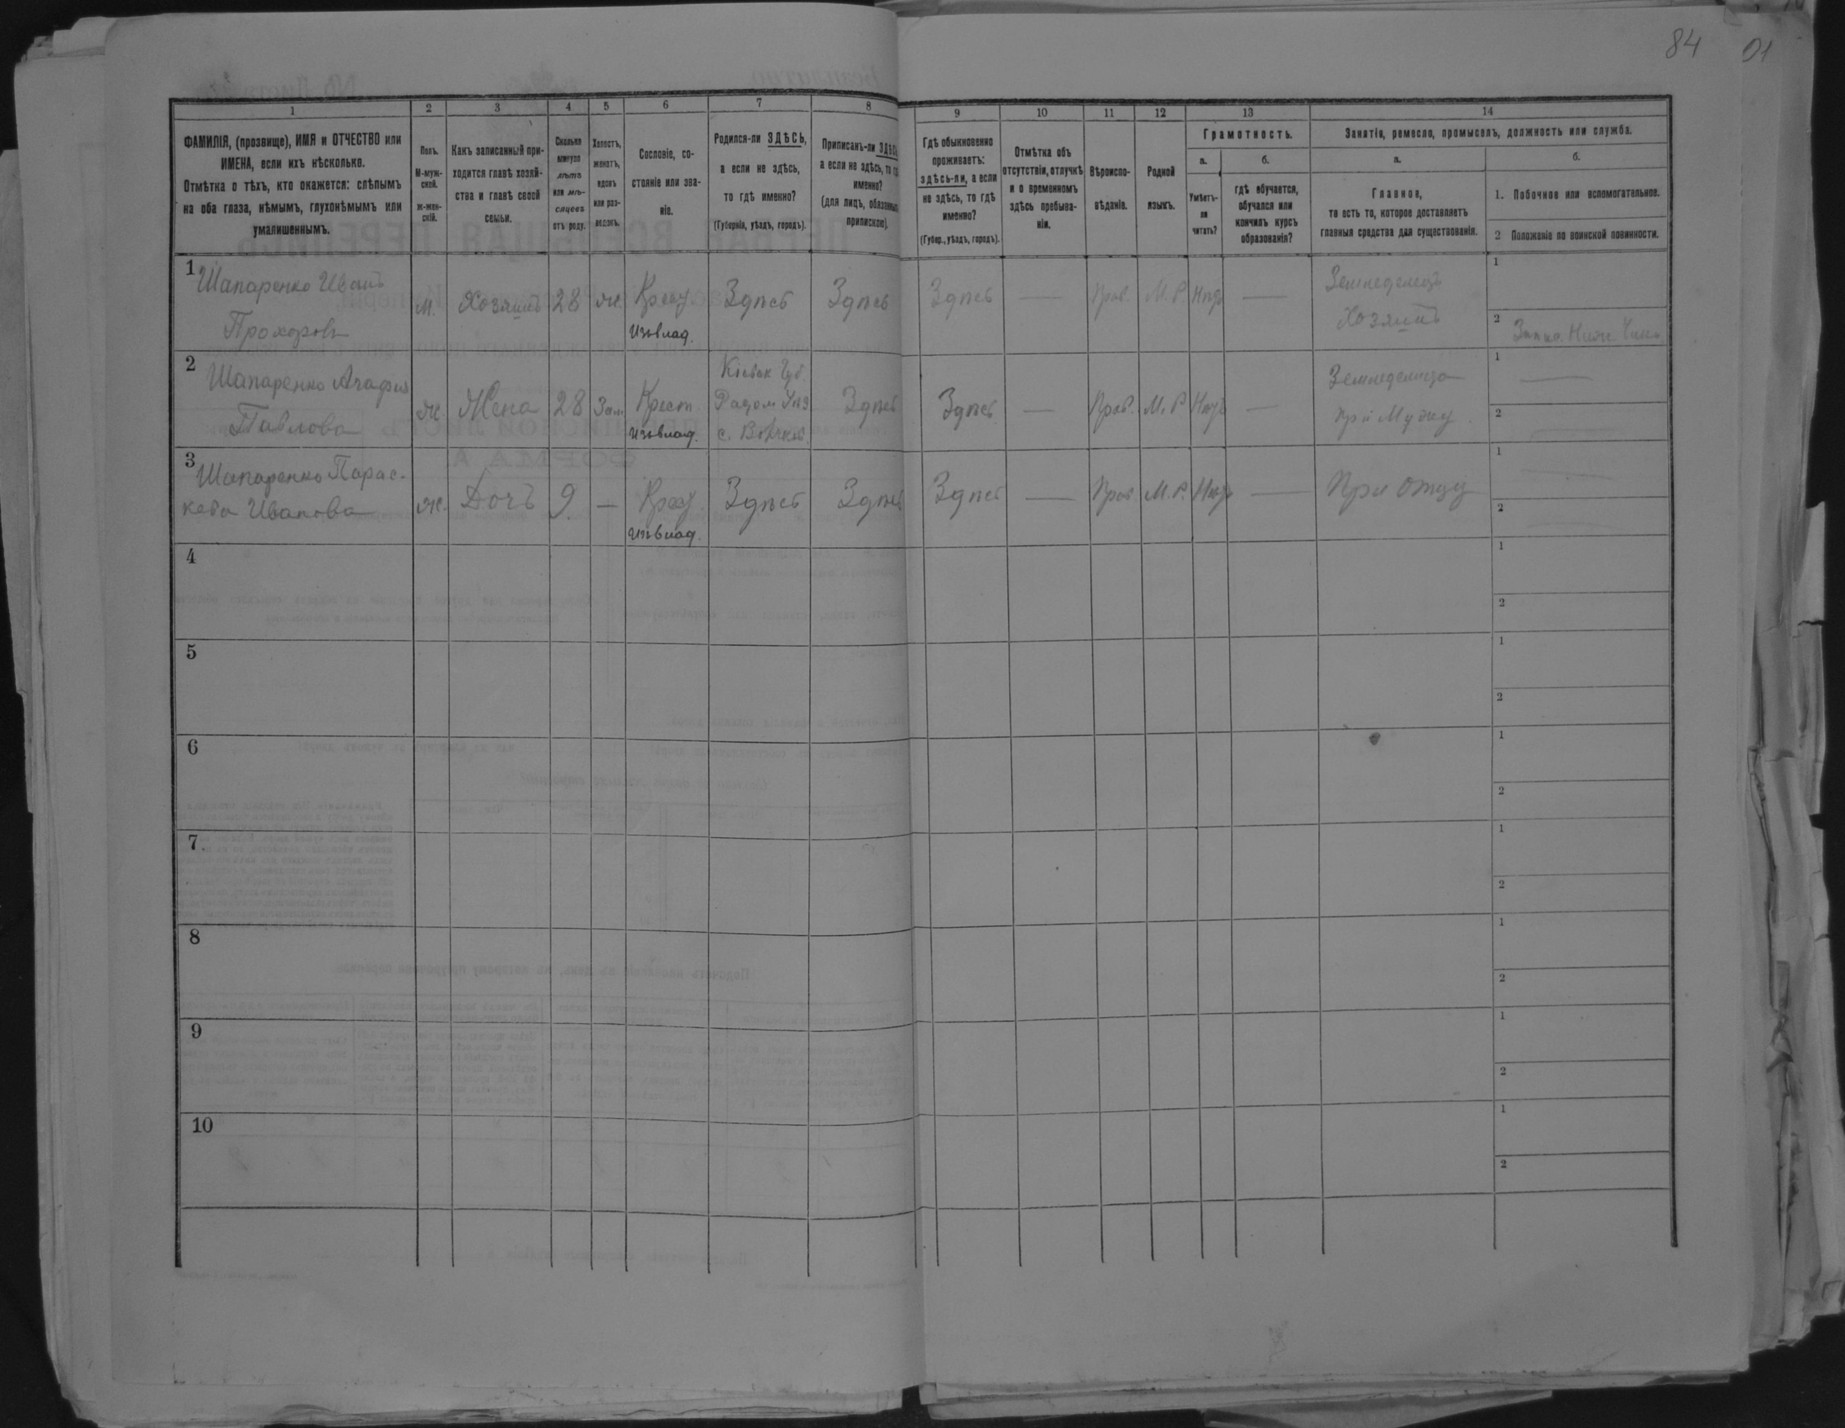 84 91
1 2 3 4 5 6 7 8 9 10 11 12 13 14
ФАМИЛІЯ, (прозвище), ИМЯ и ОТЧЕСТВО или
ИМЕНА, если ихъ нѣсколько.
Отмѣтка о тѣхъ, кто окажется: слѣпымъ
на оба глаза, нѣмымъ, глухонѣмымъ или
умалишеннымъ.
Полъ.
М-муж-
ской.
ж-жен-
скій.
Какъ записанный при-
ходится главѣ хозяй-
ства и главѣ своей
семьи.
Сколько
минуло
лѣтъ
или мѣ-
сяцевъ
отъ роду.
Холостъ,
женатъ,
вдовъ
или раз-
веденъ.
Сословіе, со-
стояніе или зва-
ніе.
Родился-ли ЗДѢСЬ,
а если не здѣсь,
то гдѣ именно?
(Губернія, уѣздъ, городъ).
Приписанъ-ли ЗДѢСЬ
а если не здѣсь, то гдѣ
именно?
(для лицъ, обязанныхъ
припискою).
Гдѣ обыкновенно
проживаетъ:
здѣсь-ли, а если
не здѣсь, то гдѣ
именно?
(Губер., уѣздъ, городъ).
Отмѣтка объ
отсутствіи, отлучкѣ
и о временномъ
здѣсь пребыва-
ніи.
Вѣроиспо-
вѣданіе.
Родной
языкъ.
Грамотность.
а.
Умѣетъ-
ли
читать?
б.
гдѣ обучается,
обучался или
кончилъ курсъ
образованія?
Занятіе, ремесло, промыселъ, должность или служба.
а.
Главное,
то есть то, которое доставляетъ
главныя средства для существованія.
б.
1. Побочное или вспомогательное.
2 Положеніе по воинской повинности.
1
Шапаренко Иванъ
Прохоровъ
м. Хозяинъ 28 ж. Крест.
изъ влад.
Здѣсь Здѣсь Здѣсь — Прав. М. Р. Нѣтъ —
Земледелецъ
Хозяинъ
1
2
2
Шапаренко Агафия
Павлова
ж. Жена 28 Зам. Крест.
изъ влад.
Кіевск Губ.
с.
Здѣсь Здѣсь — Прав. М. Р Нѣтъ —
Земледелица
при Мужу
1 —
2 —
3
Шапаренко Парас-
кева Иванова
ж. Дочь 9. — Крест.
изъ влад.
Здѣсь Здѣсь Здѣсь — Прав М. Р. Нѣтъ —
При отцу
1 —
2 —
4
1
2
5
1
2
6
1
2
7.
1
2
8
1
2
9
1
2
10
1
2